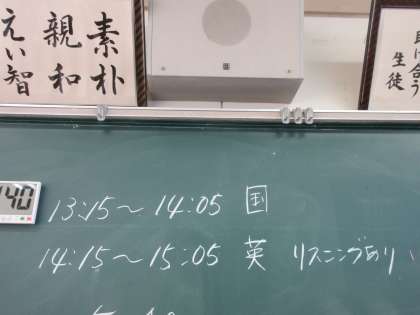 素朴
親和
えい智
助け合う
生徒
40
13:15〜14:05 国
14:15〜15:05 英 リスニングあり